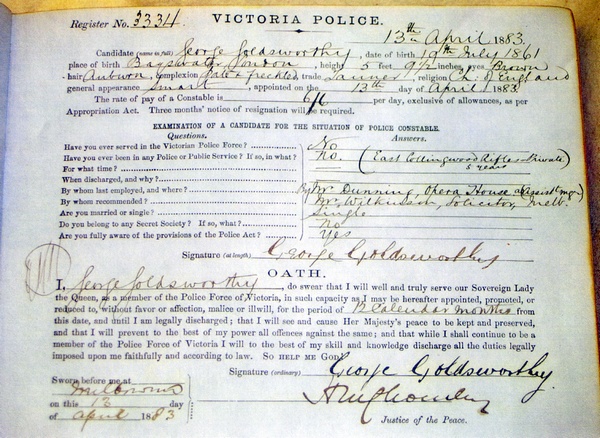 Register No. 3334 VICTORIA POLICE.
13th April 1883
Candidate (name in full) George Goldsworthy, date of birth 19th July 1861
place of birth Bayswater London, height 5 feet 9½ inches, eyes Brown
hair Auburn, complexion pale & freckled, trade Tanner, religion Ch. of England
general appearance Smart, appointed on the 13th day of April 1883
The rate of pay of a Constable is 6/6 per day, exclusive of allowances, as per
Appropriation Act. Three months' notice of resignation will be required.
EXAMINATION OF A CANDIDATE FOR THE SITUATION OF POLICE CONSTABLE.
Questions. Answers.
Have you ever served in the Victorian Police Force? No
Have you ever been in any Police or Public Service? If so, in what? No. (East Collingwood Rifles Private)
For what time? 5 years
When discharged, and why?
By whom last employed, and where? By Mr Dunning, Opera House
By whom recommended? Mr Wilkinson, Solicitor, Melb.
Are you married or single? Single
Do you belong to any Secret Society? If so, what? No
Are you fully aware of the provisions of the Police Act? Yes
Signature (at length) George Goldsworthy
OATH.
I, George Goldsworthy, do swear that I will well and truly serve our Sovereign Lady
the Queen, as a member of the Police Force of Victoria, in such capacity as I may be hereafter appointed, promoted, or
reduced to, without favor or affection, malice or illwill, for the period of 12 Calendar months from
this date, and until I am legally discharged; that I will see and cause Her Majesty's peace to be kept and preserved,
and that I will prevent to the best of my power all offences against the same; and that while I shall continue to be a
member of the Police Force of Victoria I will to the best of my skill and knowledge discharge all the duties legally
imposed upon me faithfully and according to law. SO HELP ME GOD.
Signature (ordinary) George Goldsworthy
Sworn before me at
Melbourne
on this 13 day
of April 1883
Justice of the Peace.